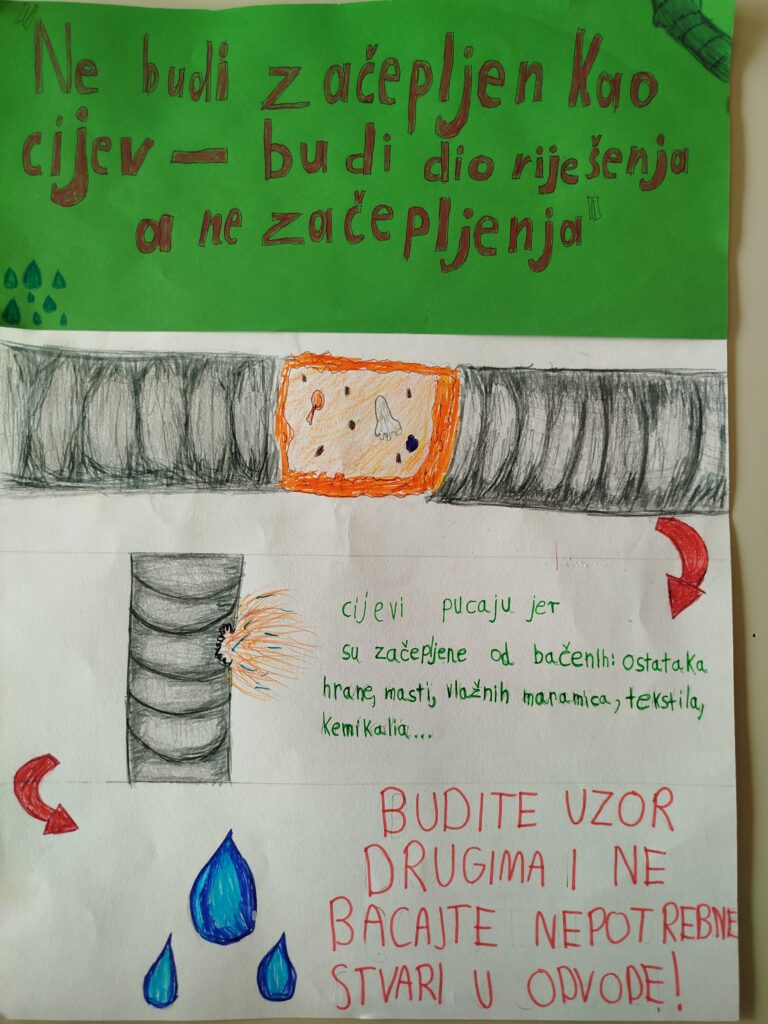 "Ne budi začepljen kao
cijev – budi dio riješenja
a ne začepljenja"
cijevi pucaju jer
su začepljene od bačenih: ostataka
hrane, masti, vlažnih maramica, tekstila,
kemikalia...
BUDITE UZOR
DRUGIMA I NE
BACAJTE NEPOTREBNE
STVARI U ODVODE!